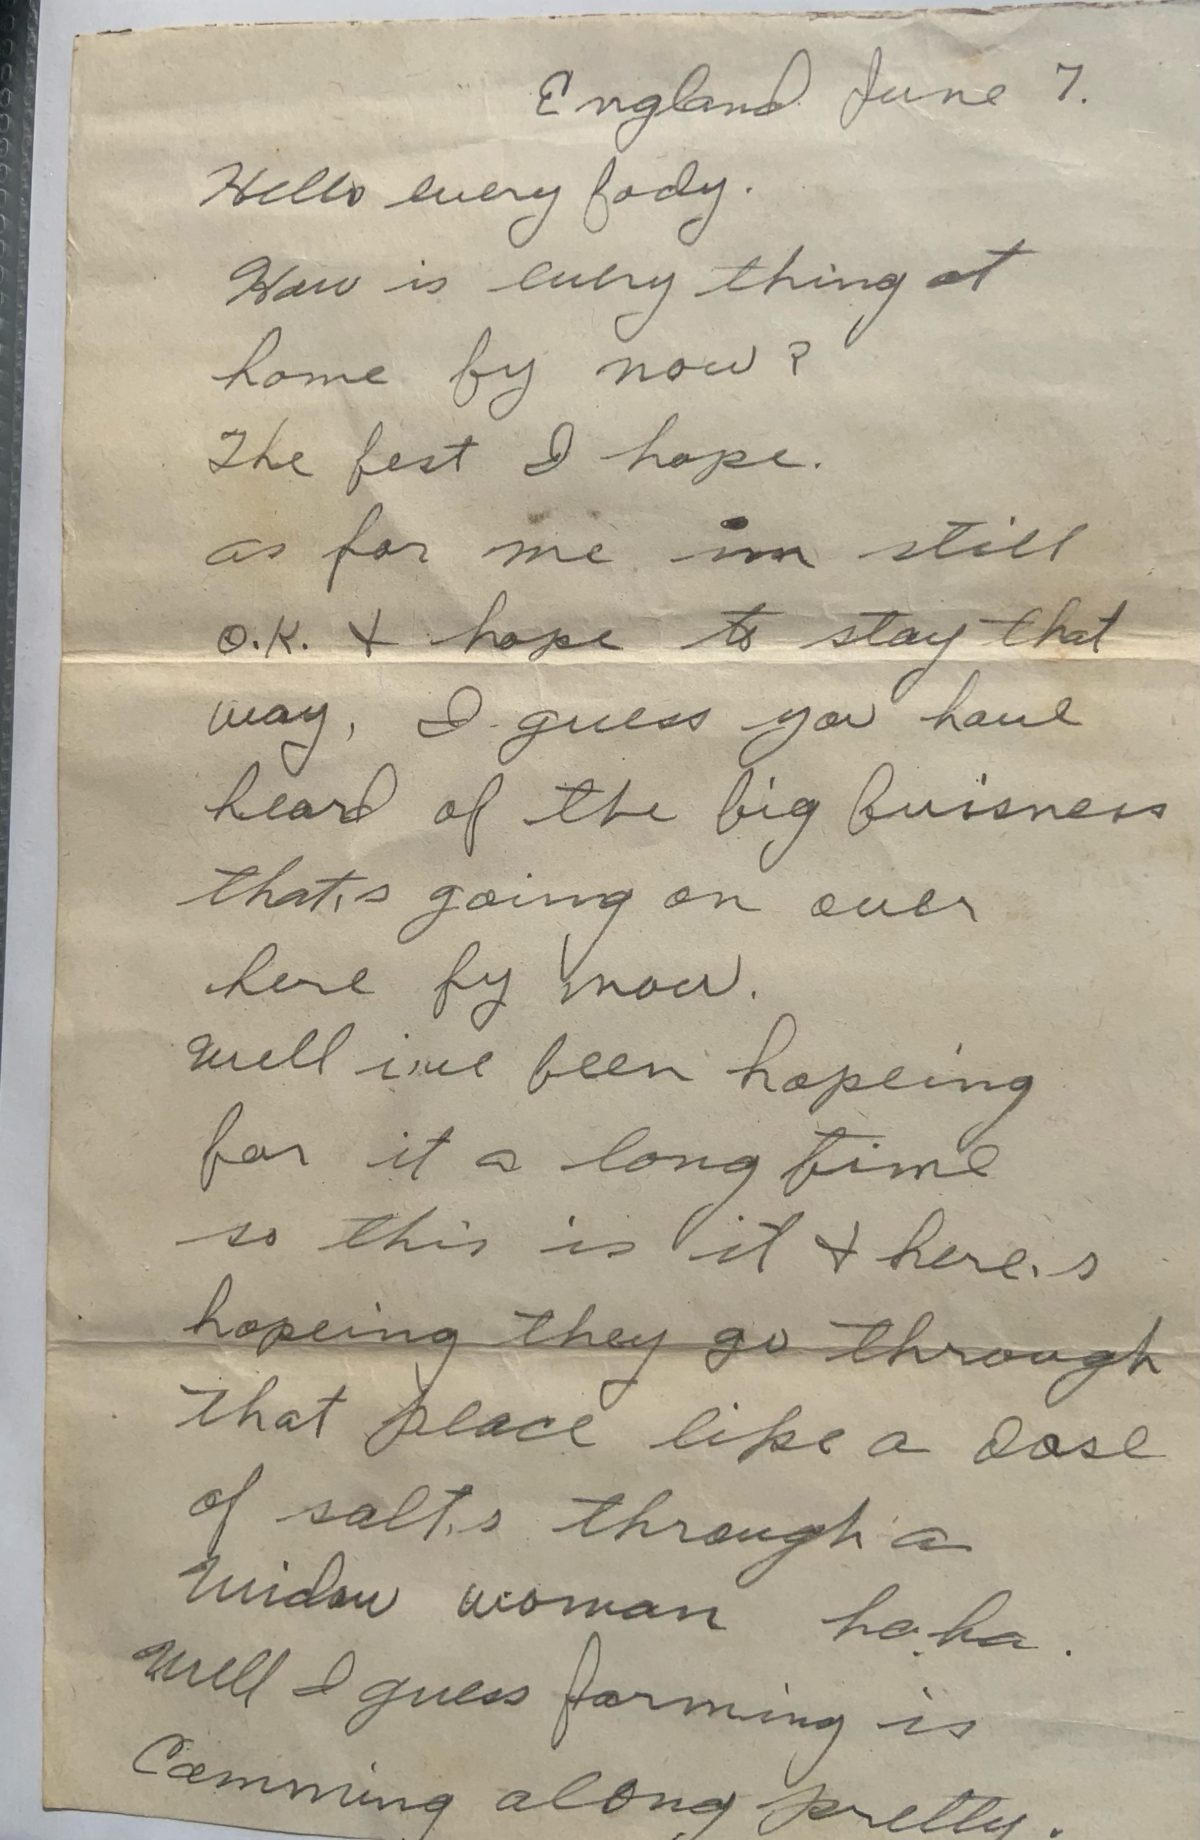 England June 7.
Hello every body.
How is every thing at
home by now?
The best I hope.
as for me im still
O.K. & hope to stay that
way, I guess you have
heard of the big buisness
that,s going on over
here by now.
Well i,ve been hopeing
for it a long time
so this is it & here,s
hopeing they go through
that place like a dose
of salt,s through a
widow woman ha.ha.
Well I guess farming is
Comming along pretty.